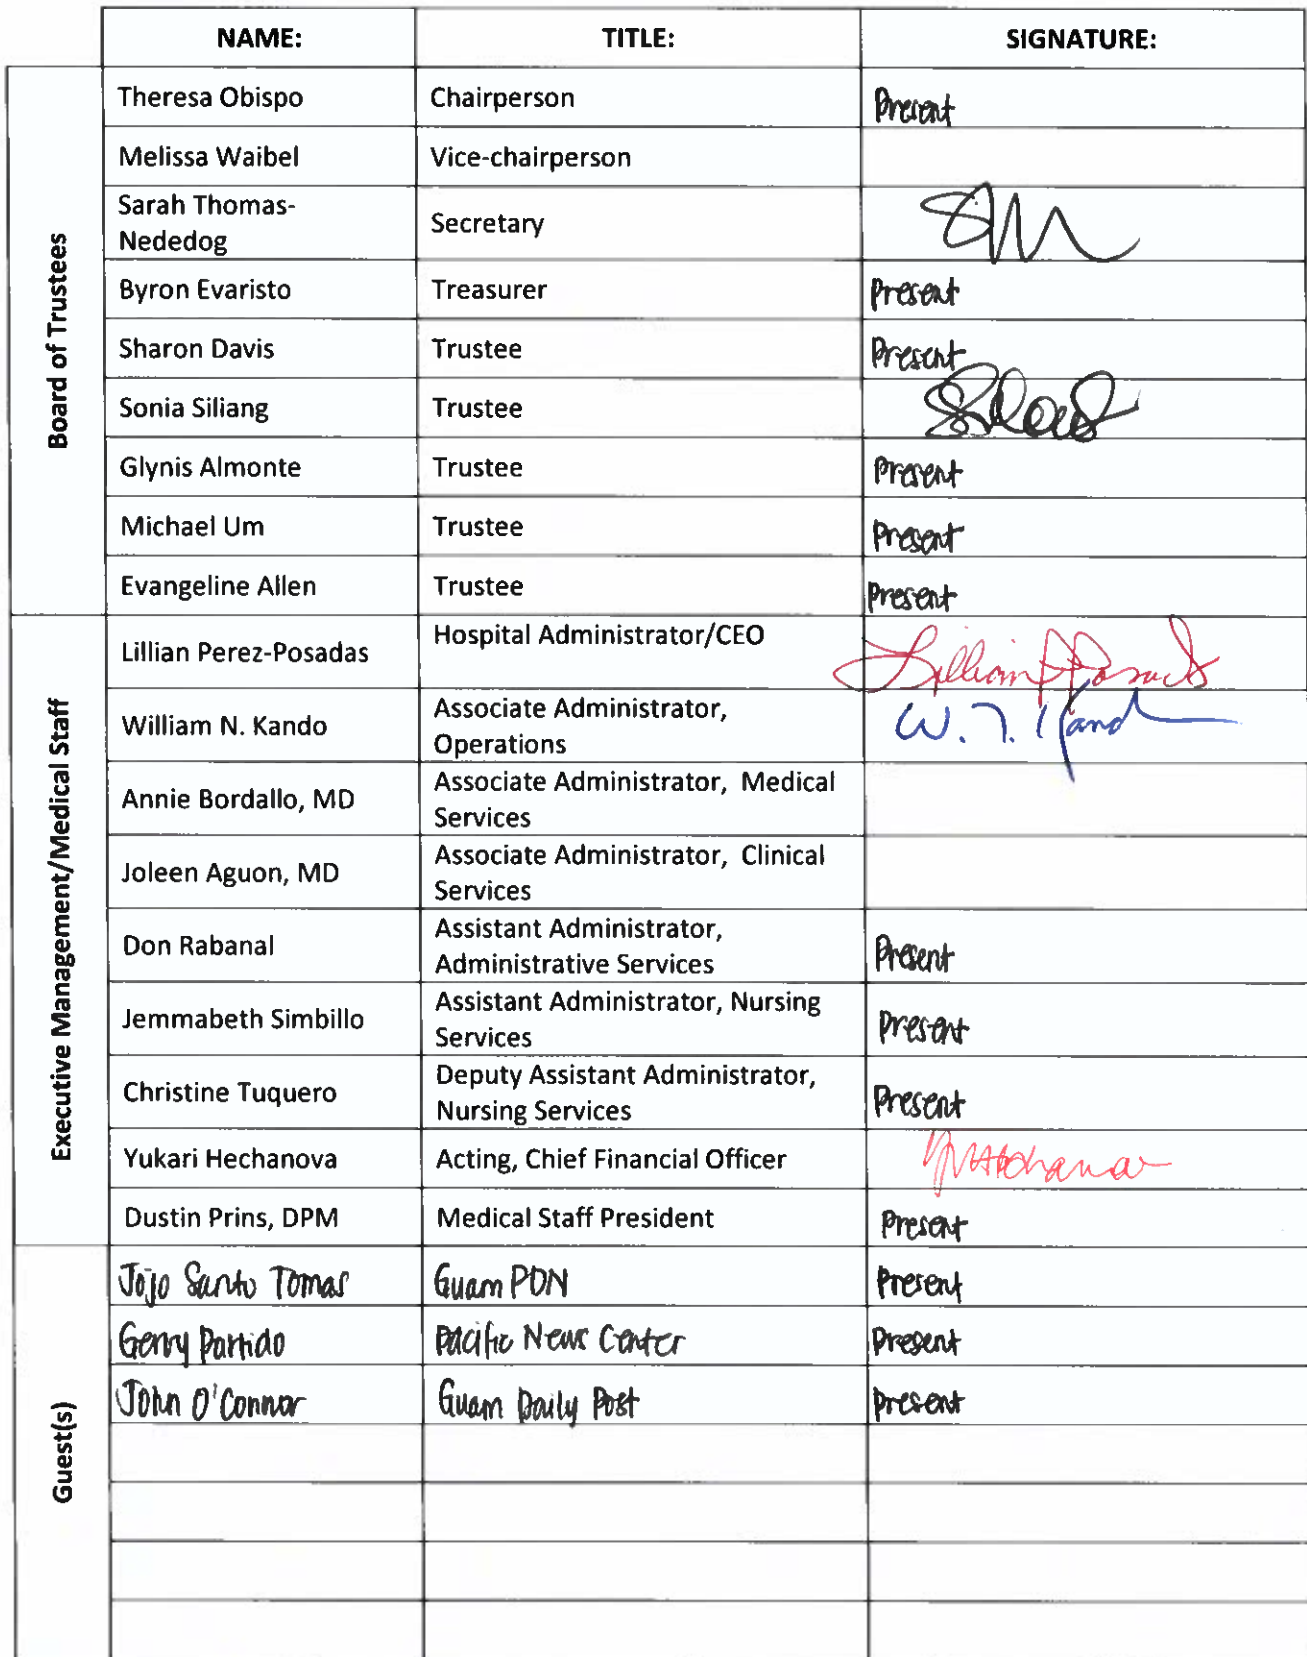 NAME: TITLE: SIGNATURE:
Board of Trustees
Theresa Obispo Chairperson Present
Melissa Waibel Vice-chairperson
Sarah Thomas-
Nededog Secretary
Byron Evaristo Treasurer Present
Sharon Davis Trustee Present
Sonia Siliang Trustee
Glynis Almonte Trustee Present
Michael Um Trustee Present
Evangeline Allen Trustee Present
Executive Management/Medical Staff
Lillian Perez-Posadas Hospital Administrator/CEO Lillian Posadas
William N. Kando Associate Administrator,
Operations W. N. Kando
Annie Bordallo, MD Associate Administrator, Medical
Services
Joleen Aguon, MD Associate Administrator, Clinical
Services
Don Rabanal Assistant Administrator,
Administrative Services Present
Jemmabeth Simbillo Assistant Administrator, Nursing
Services Present
Christine Tuquero Deputy Assistant Administrator,
Nursing Services Present
Yukari Hechanova Acting, Chief Financial Officer
Dustin Prins, DPM Medical Staff President Present
Guest(s)
Jojo Santo Tomas Guam PDN Present
Gerry Partido Pacific News Center Present
John O'Connor Guam Daily Post Present